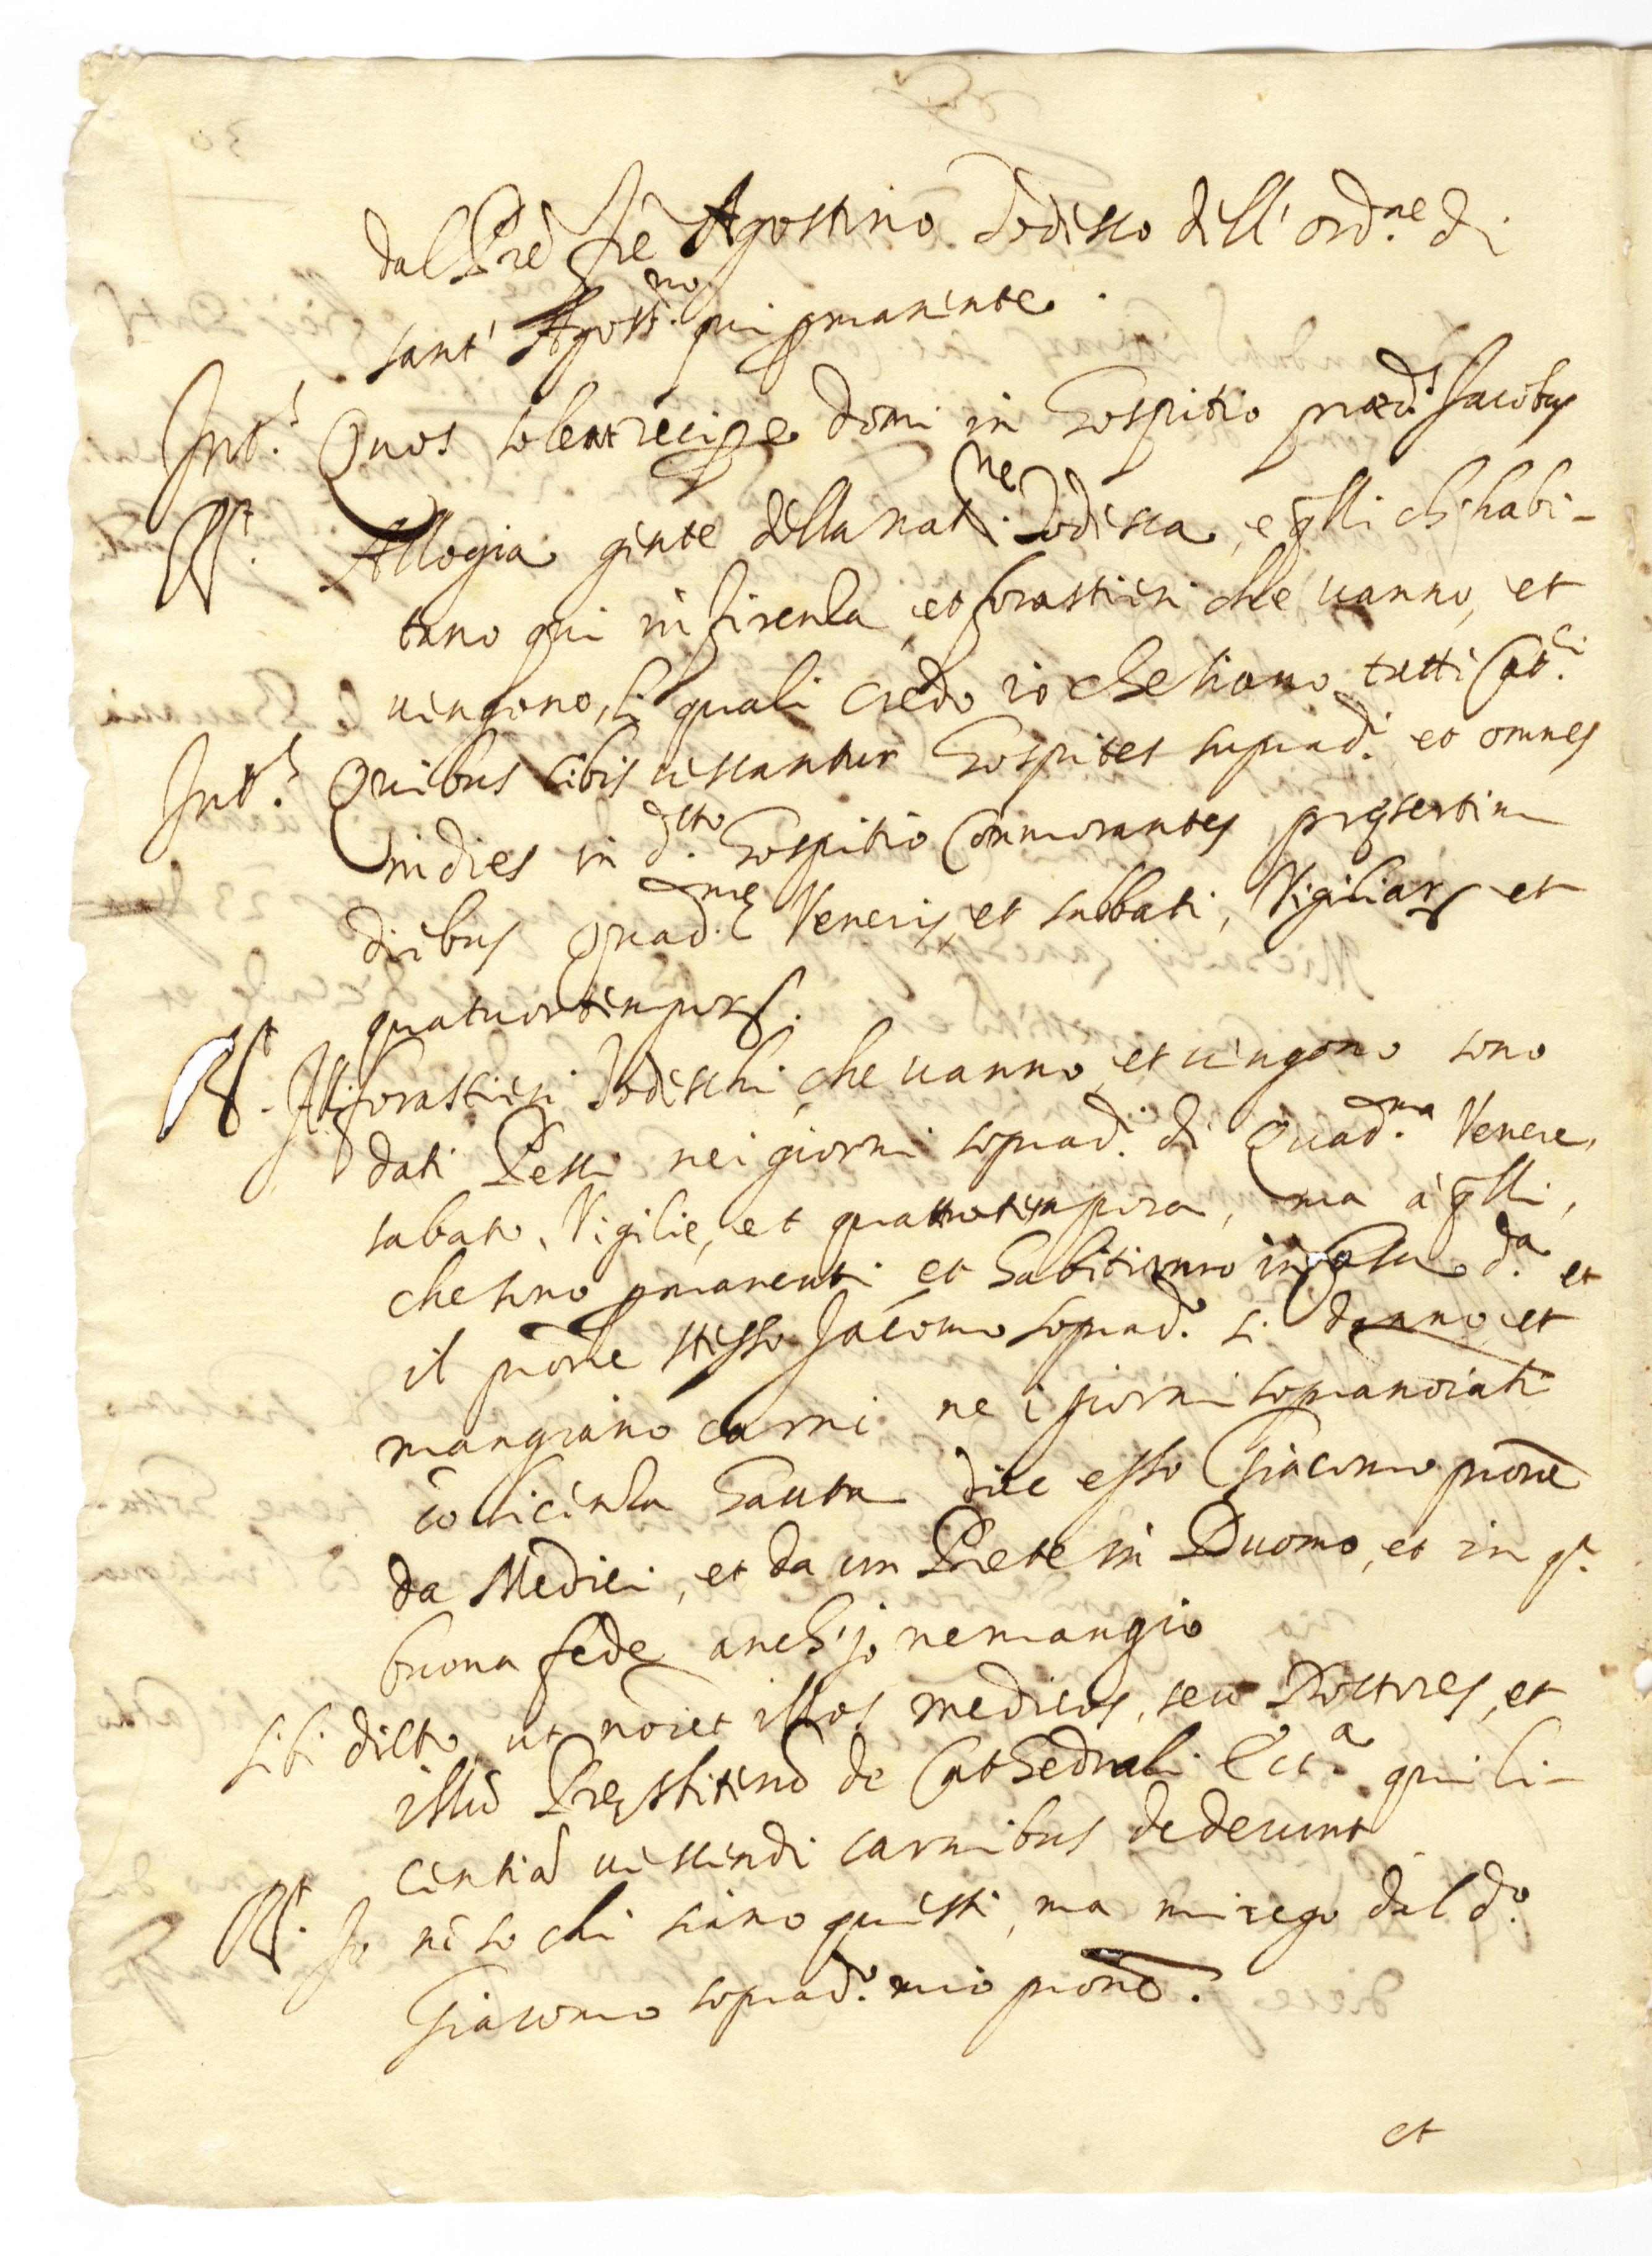 dal Pre fre Agostino Todesco dell' ord.ne di
sant' Agost.no qui pmanente.
Int.s Quos solent recipe domi in hospitio præd.s Jacobus
R.t Allogia gente della nat.ne Todesca, e qlli ch' habi-
tano qui in firenza, et forastieri che vanno, et
vengono, li quali credo io che siano tutti Cat.ci
Int.s Quibus cibis vescantur hospites suprad.i et omnes
indies in d.cto hospitio Commorantes, presertim
diebus Quad.me Veneris, et sabbati, Vigiliarum et
quatuortemporum.
R.t Alli forastieri Todeschi, che vanno, et vengono sono
dati Pesci nei giorni soprad.i di Quad.ma Venere,
sabato, Vigilie, et quattrotempora, ma à qlli,
che sono pmanenti et habitiamo in Casa d.a et
il prone stesso Jacomo soprad.o si danno, et
mangiano carni ne i giorni sopranoiati
cō licenza hauta dice esso Giacomo prone
da Medici, et da un Prete in Duomo, et in q.ta
buona fede anch' jo ne mangio
sibi dicto ut noiet illos medicos, seu Doctores, et
illū Presbiterū de Cathedrali Ecc.a qui li-
centiā vescendi carnibus dederunt
R.t Jo nō so chi siano questi, ma mi rego dal d.o
Giacomo soprad.o mio prone.
et